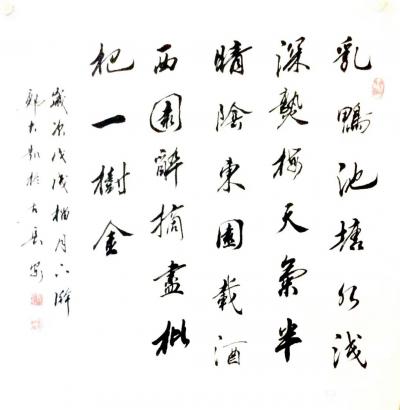 乳鴨池塘水浅
深熟梅天氣半
晴陰東園載酒
西園醉摘盡枇
杷一樹金
歲次戊戌榴月下澣
於古長安